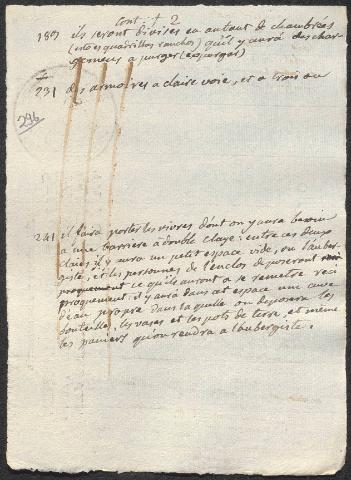 Cont. + 2
189 ils seront divisés en autant de chambrées
(esto es quadrillas ranchos) qu'il y aura de char-
gemens a purger (expurgar)
231 des armoires a claire voie, et a trois ou
296
241 il faira porter les vivres dont on y aura besoin
a une barriere à double claye: entre ces deux
claies il y aura un petit espace vide, ou l'auber-
giste, et les personnes de l'enclos déposeront
ce qu'ils auront a se remetre reci
proquement: il y aura dans cet espace une cuve
d'eau propre dans laquelle on deposera les
bouteilles, les vases et les pots de terre, et même
les paniers qu'on rendra a l'aubergiste.